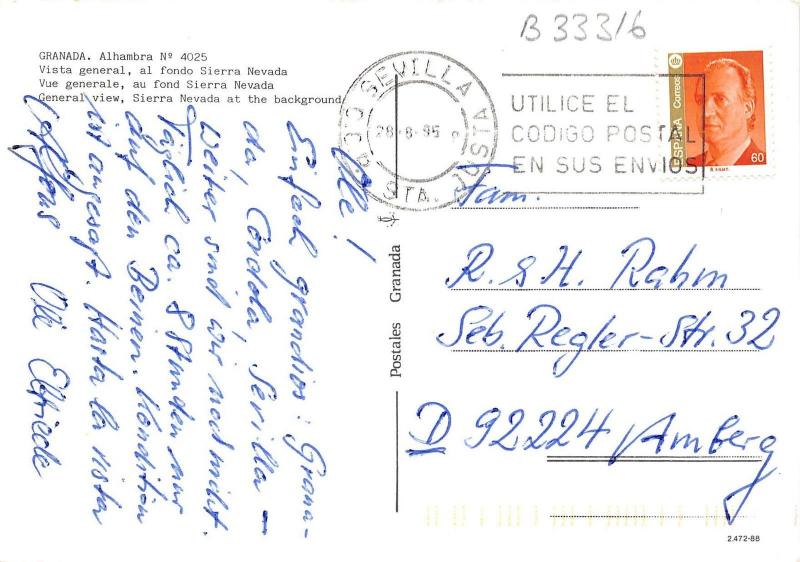 B 333/6
GRANADA. Alhambra Nº 4025
Vista general, al fondo Sierra Nevada
Vue generale, au fond Sierra Nevada
General view, Sierra Nevada at the background
SEVILLA
28-8-95
POSTA
UTILICE EL
CODIGO POSTAL
EN SUS ENVIOS
ESPAÑA
Correos
60
Olé!
Einfach grandios: Grana-
da, Cordoba, Sevilla –
weiter sind wir noch nicht.
Täglich ca. 8 Stunden nur
auf den Beinen. Kondition
ist angesagt. Hasta la vista
Elfriede
Postales Granada
Fam.
R. & H. Rahm
Seb. Regler-Str. 32
D 92224 Amberg
2.472-88